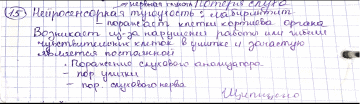 = нервная глухота Потеря слуха
15 Нейросенсорная тугоухость: лабиринтит
- поражает клетки кортиева органа
Возникает из-за нарушения работы или гибели
чувствительных клеток в улитке и зачастую
является постоянной
· Поражение слухового анализатора
- пор. улитки
- пор. слухового нерва